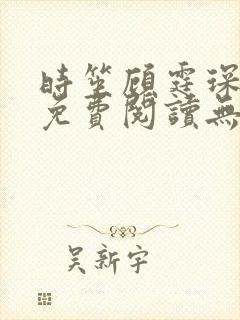 時笙顧霆琛
免費閱讀無
吳新宇